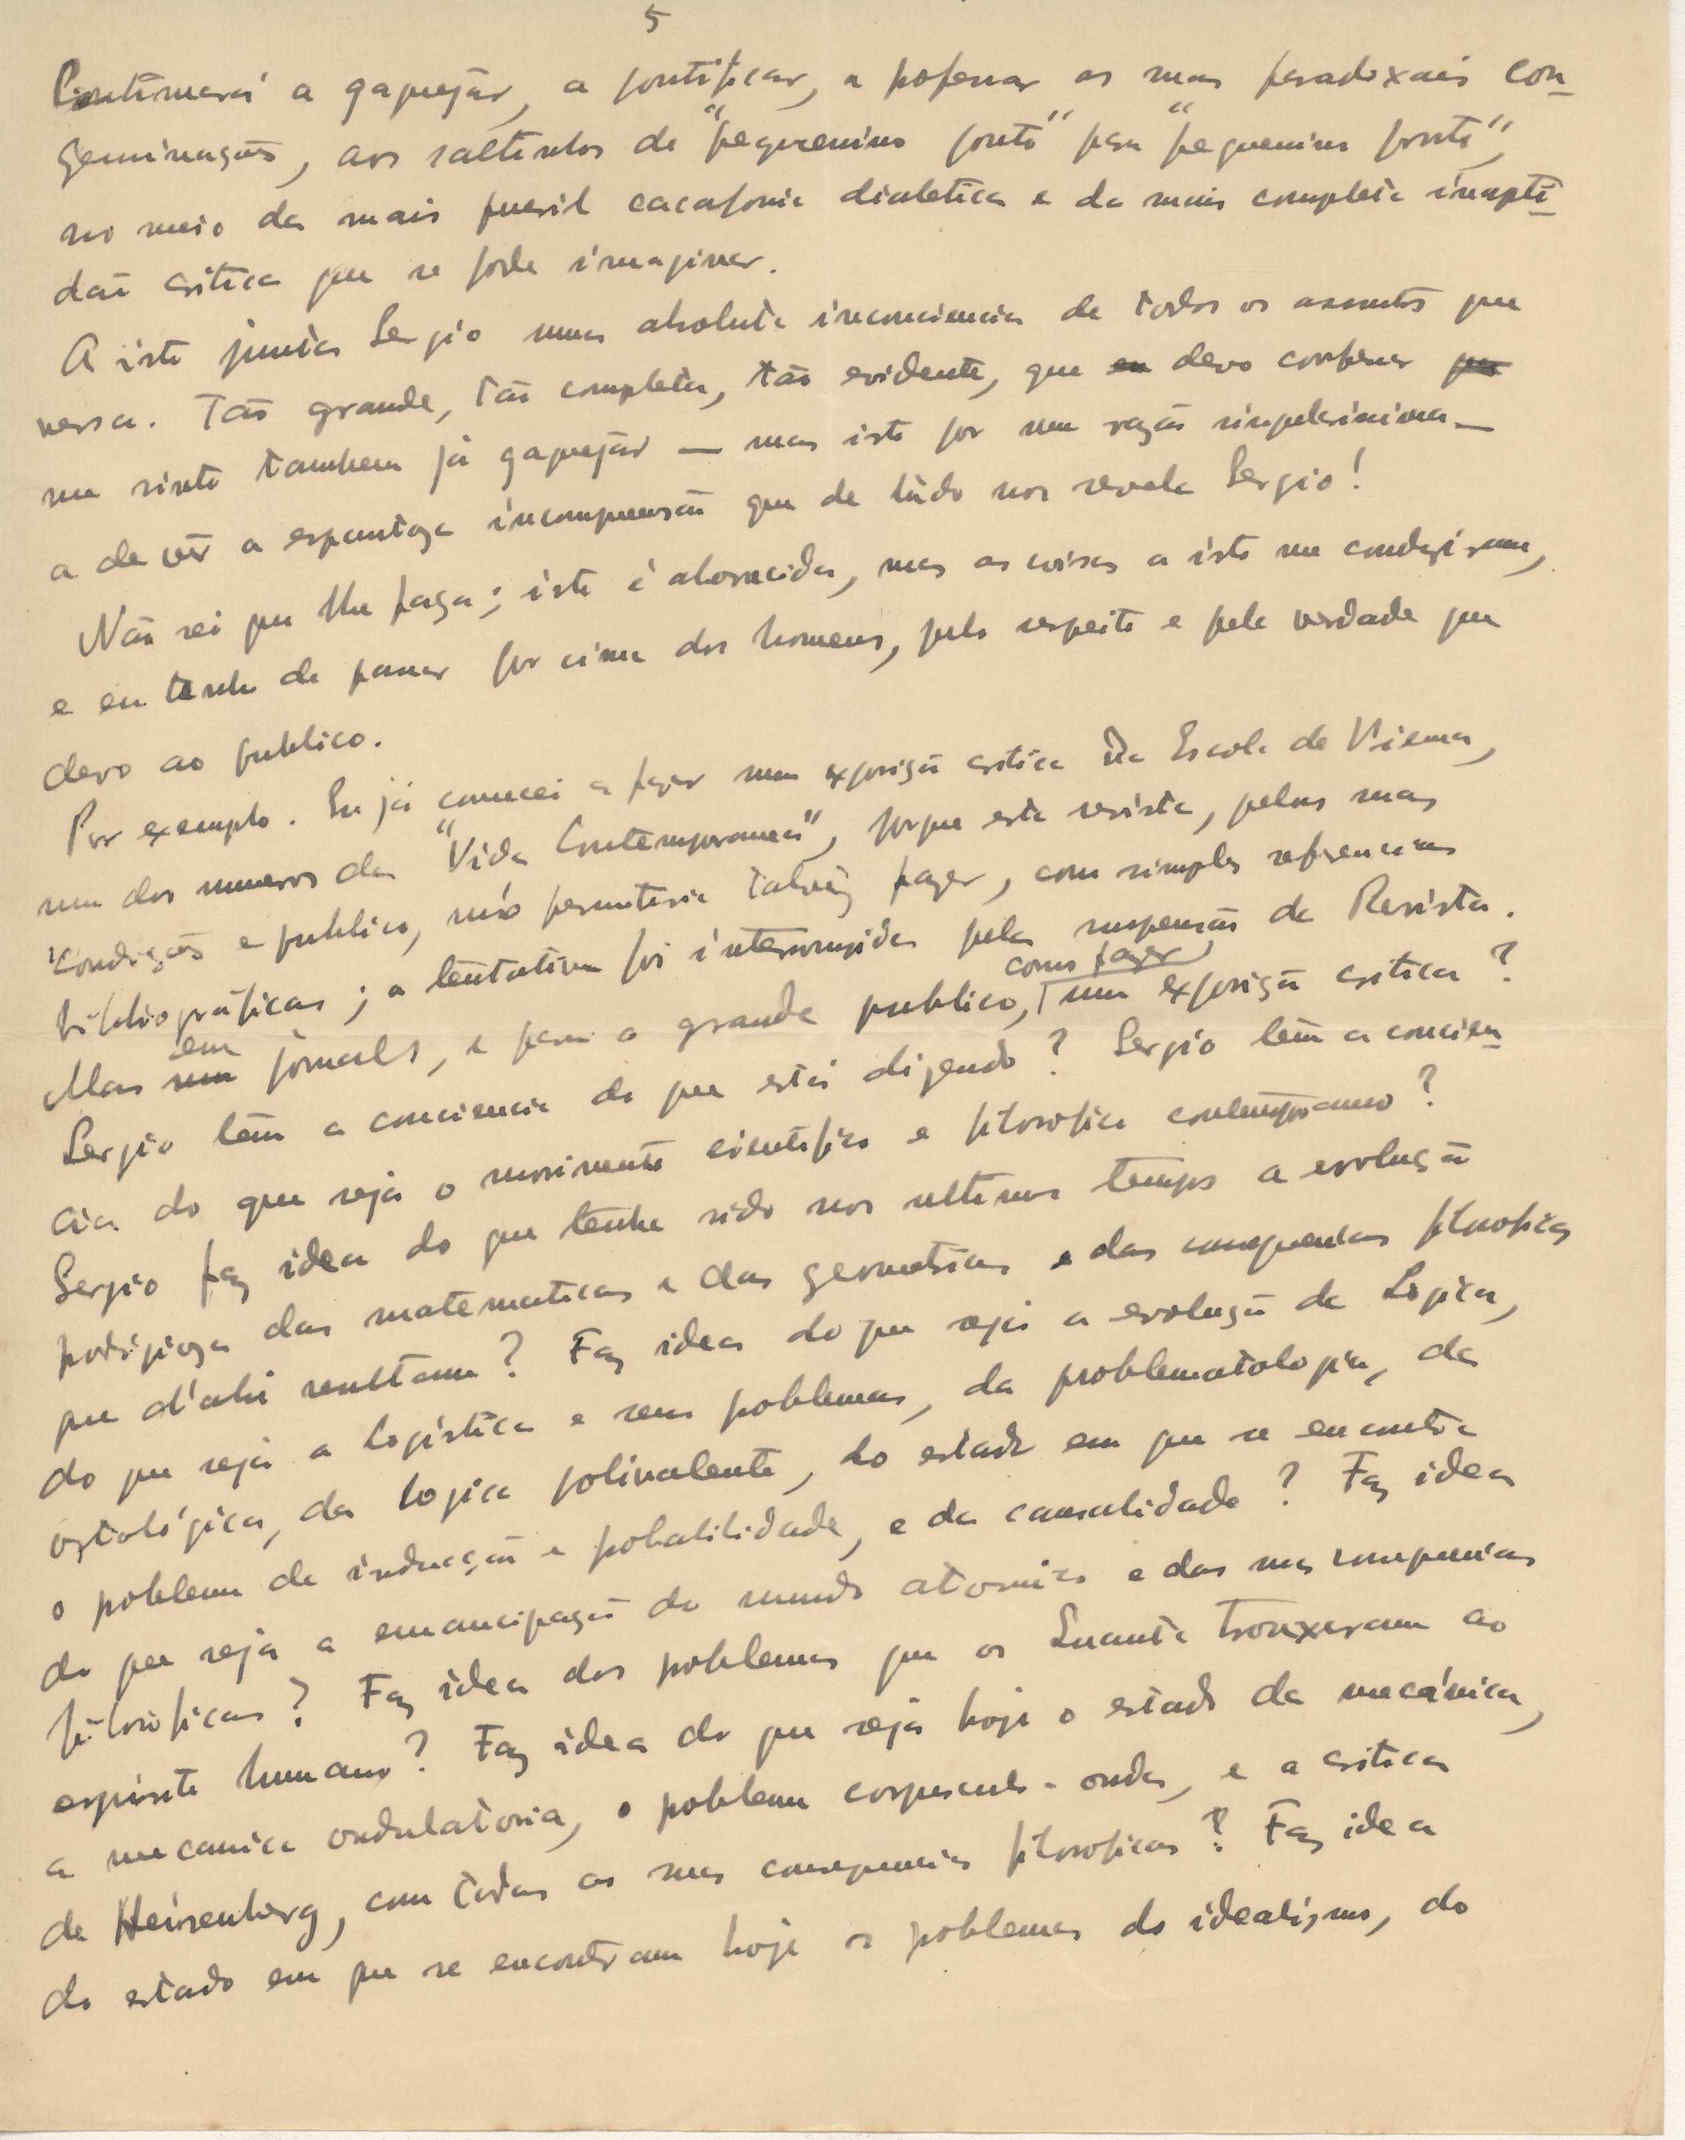 5
Continuará a gaguejar, a pontificar, a proferir as mais paradoxais con-
geminações, aos saltinhos de "pequenino ponto" para "pequenino ponto",
no meio da mais pueril cacafonia dialetica e da mais completa inapti-
dão critica que se pode imaginar.
A isto junta Sergio uma absoluta inconciencia de todos os assuntos que
versa. Tão grande, tão completa, tão evidente, que eu devo confessar que
me sinto tambem já gaguejar — mas isto por uma razão singularissima —
a de vêr a espantosa incompreensão que de tudo nos revela Sergio!
Não sei que lhe faça; isto é aborrecido, mas as coisas a isto me conduziram,
e eu tenho de passar por cima dos homens, pelo respeito e pela verdade que
devo ao publico.
Por exemplo. Eu já comecei a fazer uma exposição critica da Escola de Viena,
num dos numeros da "Vida Contemporanea", porque esta revista, pelas suas
condições e publico, m'o permitiria talvêz fazer, com simples referencias
bibliográficas; a tentativa foi interrompida pela suspensão da Revista.
Mas num em jornal, e para o grande publico, como fazer uma exposição critica?
Sergio têm a conciencia do que está dizendo? Sergio têm a concien-
cia do que seja o movimento cientifico e filosofico contemporaneo?
Sergio faz idea do que tenha sido nos ultimos tempos a evolução
prodigiosa das matematicas e das geometrias e das consequencias filosoficas
que d'ahi resultam? Faz idea do que seja a evolução da Logica,
do que seja a Logistica e seus problemas, da problematologia, da
da logica polivalente, do estado em que se encontra
o problema da inducção e probabilidade, e da causalidade? Faz idea
do que seja a emancipação do mundo atomico e das suas consequencias
filosóficas? Faz idea dos problemas que os Quanta trouxeram ao
espirito humano? Faz idea do que seja hoje o estado da mecánica,
a mecanica ondulatoria, o problema corpusculo-onda, e a critica
de Heisenberg, com todas as suas consequencias filosoficas? Faz idea
do estado em que se encontram hoje os problemas do idealismo, do